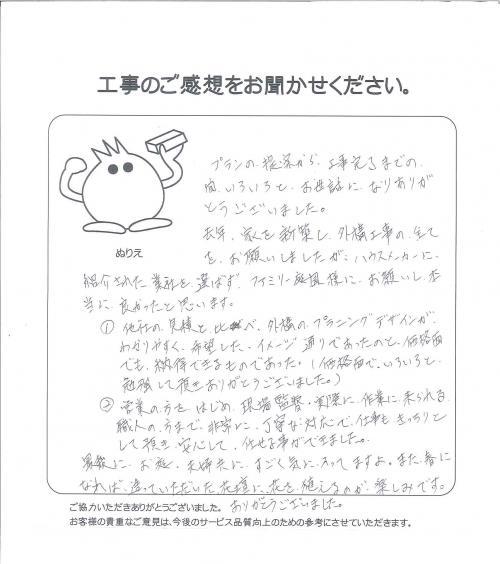 工事のご感想をお聞かせください。
プランの提案から、工事完了までの
間、いろいろと、お世話に、なりありが
とうございました。
去年、家を新築し、外構工事の、全て
を、お願いしましたが、ハウスメーカーに、
ぬりえ
紹介された業社を、選ばず、ファミリー庭園様に、お願いし、本
当に、良かったと思います。
① 他社の、見積と、比べ、外構の、プランニングデザインが、
わかりやすく、希望した、イメージ通りであったのと、価格面
でも、納得できるものであった。(価格面で、いろいろと、
勉強して頂きありがとうございました。)
② 営業の方を、はじめ、現場監督・実際に、作業に、来られる、
職人の、方まで、非常に、丁寧な対応で、仕事も、きっちりと
して頂き、安心して、任せる事ができました。
最後に、お庭、夫婦共に、すごく気に入ってますよ。また、春に
なれば、造っていただいた、花壇に、花を、植えるのが、楽しみです。
ありがとうございました。
ご協力いただきありがとうございました。
お客様の貴重なご意見は、今後のサービス品質向上のための参考にさせていただきます。